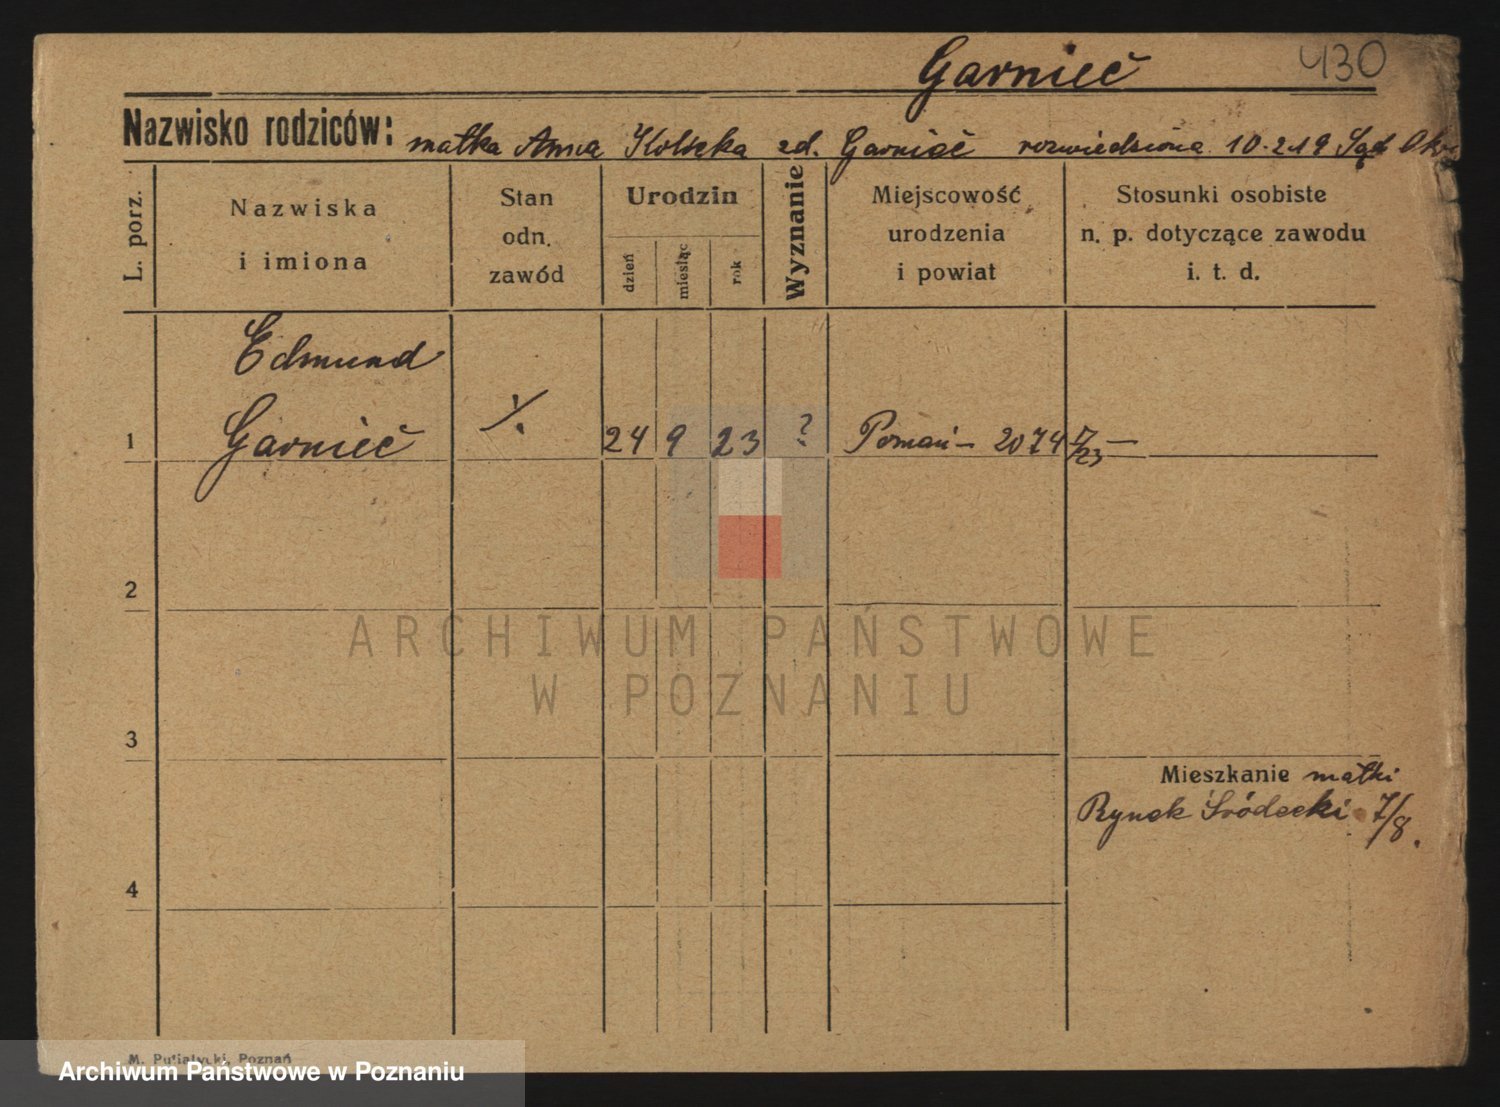 Garnieć 430
Nazwisko rodziców: matka Anna Kolszka zd. Garnieć rozwiedziona 10.2.19 Sąd Okr
L. porz.
Nazwiska
i imiona
Stan
odn.
zawód
Urodzin
dzień
miesiąc
rok
Wyznanie
Miejscowość
urodzenia
i powiat
Stosunki osobiste
n. p. dotyczące zawodu
i. t. d.
Edmund
1 Garnieć ./. 24 9 23 ? Poznań – 2074 7/23 —
2
ARCHIWUM PAŃSTWOWE
W POZNANIU
3
Mieszkanie matki
Rynek Śródecki 7/8.
4
M. Putiatycki, Poznań
Archiwum Państwowe w Poznaniu